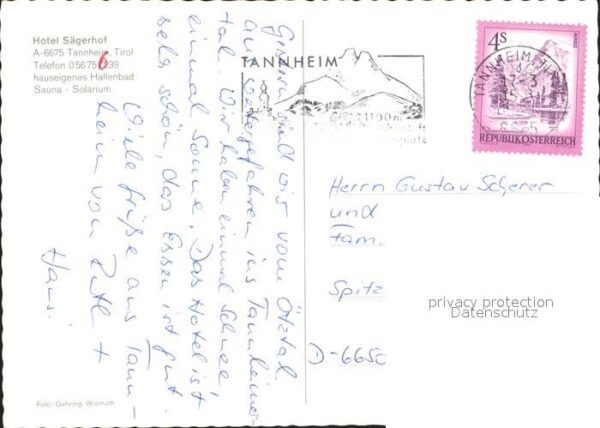 Hotel Sägerhof
A-6675 Tannheim, Tirol
Telefon 05675/6239
hauseigenes Hallenbad
Sauna - Solarium
Gestern sind wir vom Ötztal
aus weitergefahren ins Tannheimer
tal. Wir haben einmal Schnee
einmal Sonne. Das Hotel ist
sehr schön, das Essen ist gut.
Viele Grüße aus Tann-
heim von Ruth +
Hans.
Foto: Gehring, Wismath
TANNHEIM
1100 m
TANNHEIM
6675
4s
ALMSEE
REPUBLIK ÖSTERREICH
Herrn Gustav Scherer
und
Fam.
Spitz
D-665
privacy protection
Datenschutz